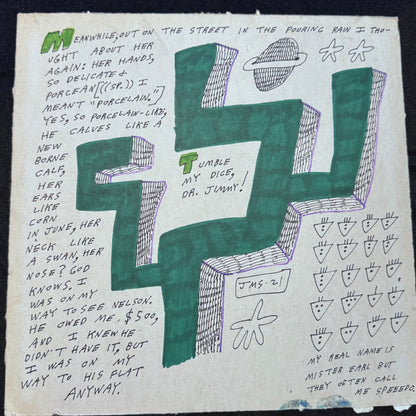 MEANWHILE, OUT ON THE STREET IN THE POURING RAIN I THO-
UGHT ABOUT HER
AGAIN: HER HANDS,
SO DELICATE &
PORCEAN [((SP.)) I
MEANT "PORCELAIN."]
YES, SO PORCELAIN-LIKE,
HE CALVES LIKE A
NEW
BORNE
CALF,
HER
EARS
LIKE
CORN
IN JUNE, HER
NECK LIKE
A SWAN, HER
NOSE? GOD
KNOWS. I
WAS ON MY
WAY TO SEE NELSON.
HE OWED ME $500,
AND I KNEW HE
DIDN'T HAVE IT, BUT
I WAS ON MY
WAY TO HIS FLAT
ANYWAY.
TUMBLE
MY DICE,
DR. JIMMY!
JMS·21
MY REAL NAME IS
MISTER EARL BUT
THEY OFTEN CALL
ME SPEEEDO.